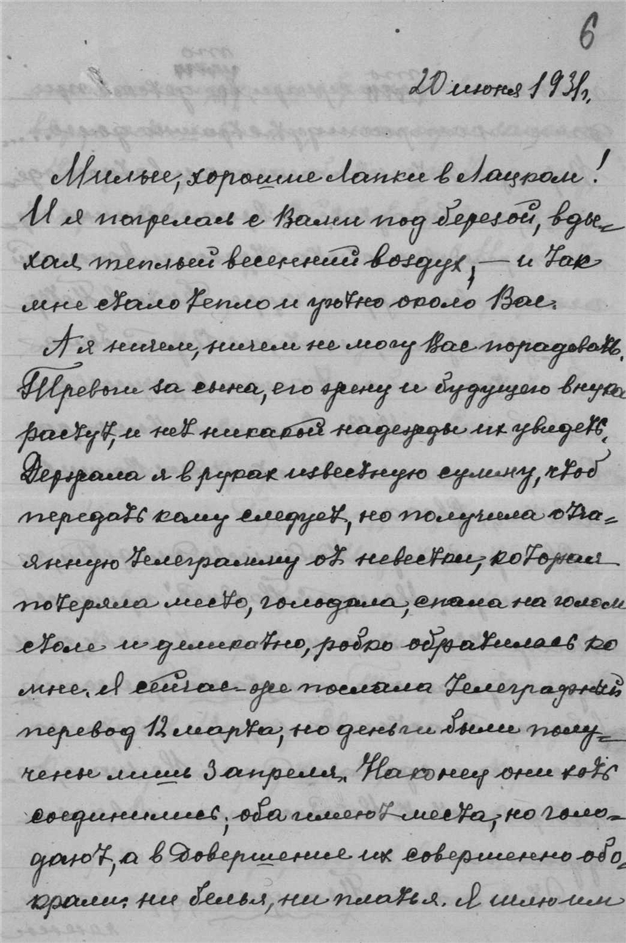 6
20 июня 1931г.
Милые, хорошие Лапки в Лацком!
И я погрелась с Вами под березой, вды-
хая теплый весенний воздух, — и так
мне стало тепло и уютно около Вас.
А я ничем, ничем не могу Вас порадовать.
Тревоги за сына, его жену и будущего внука
растут, и нет никакой надежды их увидеть.
Держала я в руках известную сумму, чтоб
передать кому следует, но получила отча-
янную телеграмму от невестки, которая
потеряла место, голодала, спала на голом
столе и деликатно, робко обратилась ко
мне. Я сейчас-же послала телеграфный
перевод 12 марта, но деньги были полу-
чены лишь 3 апреля. Наконец они хоть
соединились, оба имеют места, но голо-
дают, а в довершение их совершенно обо-
крали: ни белья, ни платья. Я шлю им